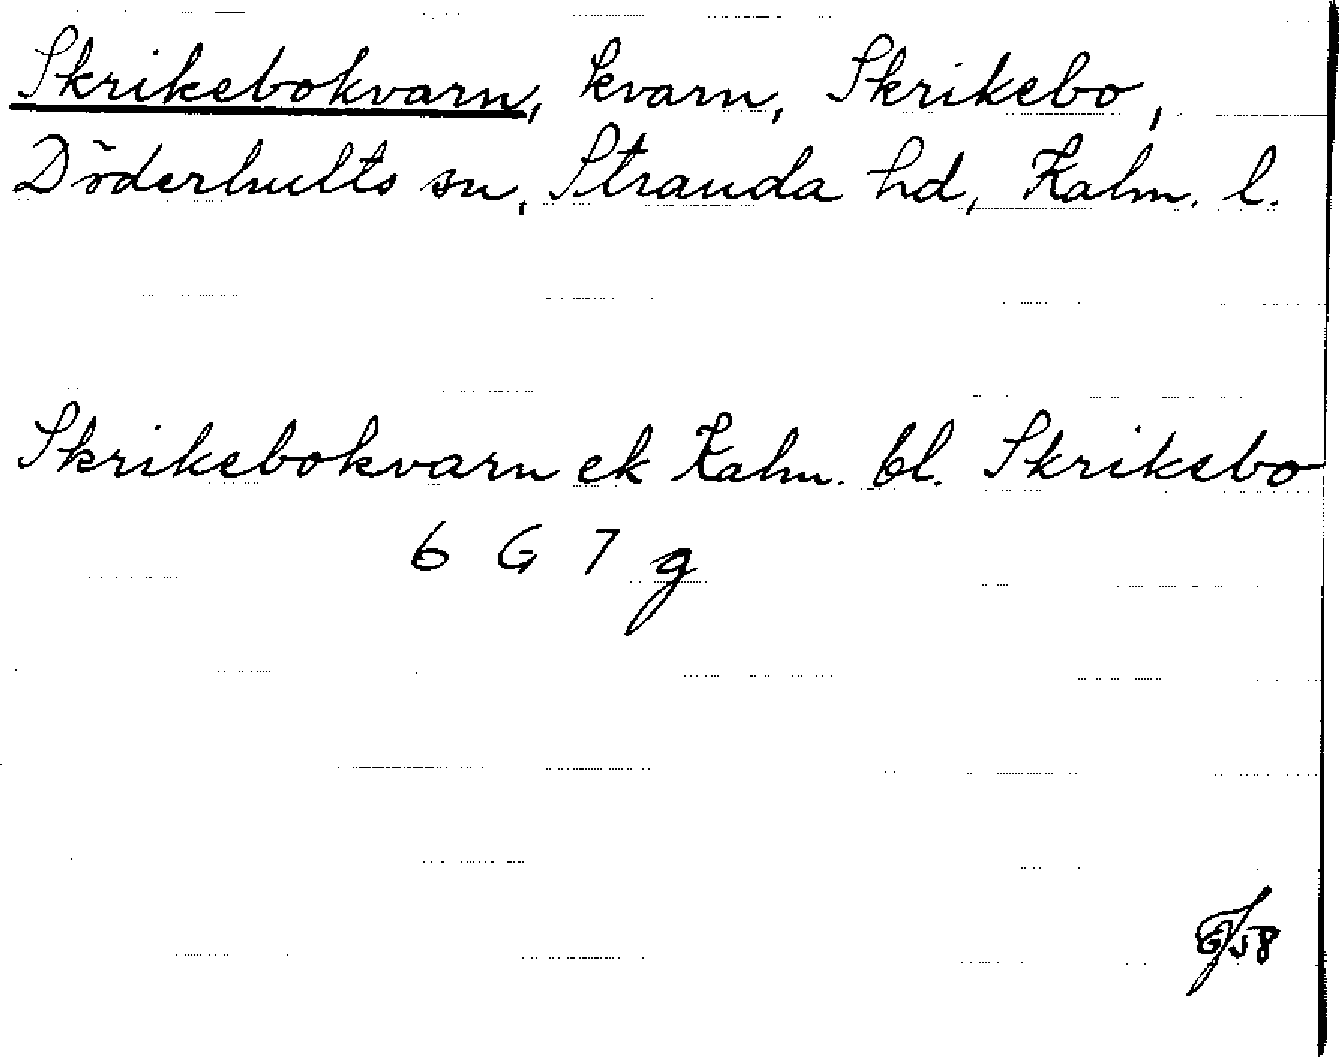 Skrikebokvarn, kvarn, Skrikebo,
Döderhults sn, Stranda hd, Kalm. l.
Skrikebokvarn ek Kalm. bl. Skrikebo
6 G 7 g